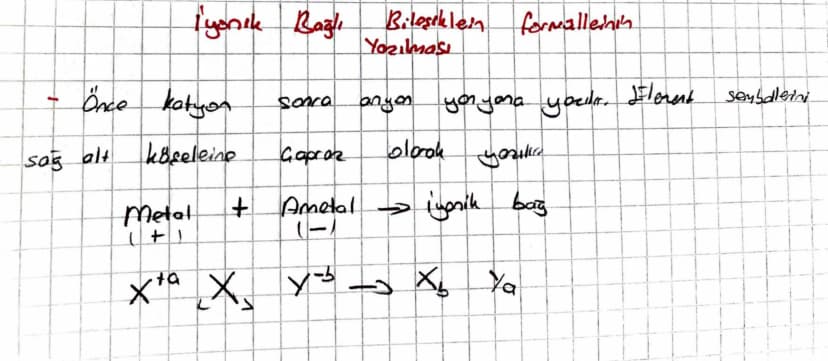 İyonik Bağlı Bileşiklerin formüllerinin
Yazılması
- Önce katyon sonra anyon yan yana yazılır. Element sembollerini
sağ alt köşelerine çapraz olarak yazılır
Metal + Ametal → iyonik bağ
(+) (-)
X⁺ᵃ X Y⁻ᵇ → X_b Y_a